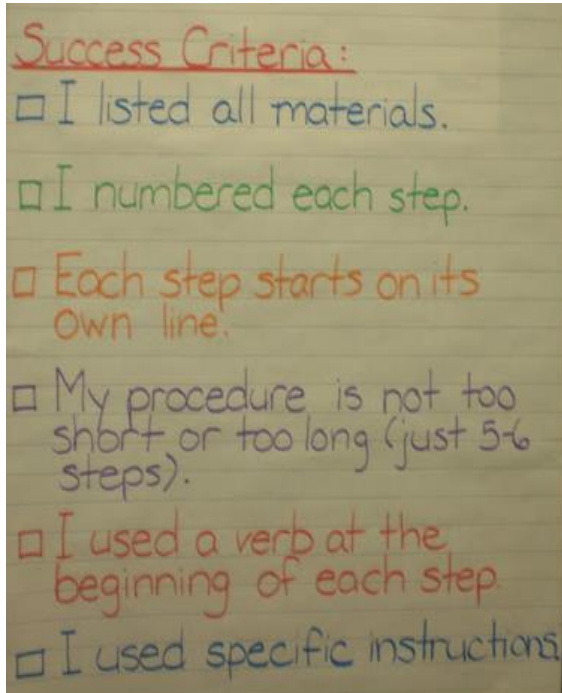 Success Criteria:
□ I listed all materials.
□ I numbered each step.
□ Each step starts on its
own line.
□ My procedure is not too
short or too long (just 5-6
steps).
□ I used a verb at the
beginning of each step.
□ I used specific instructions